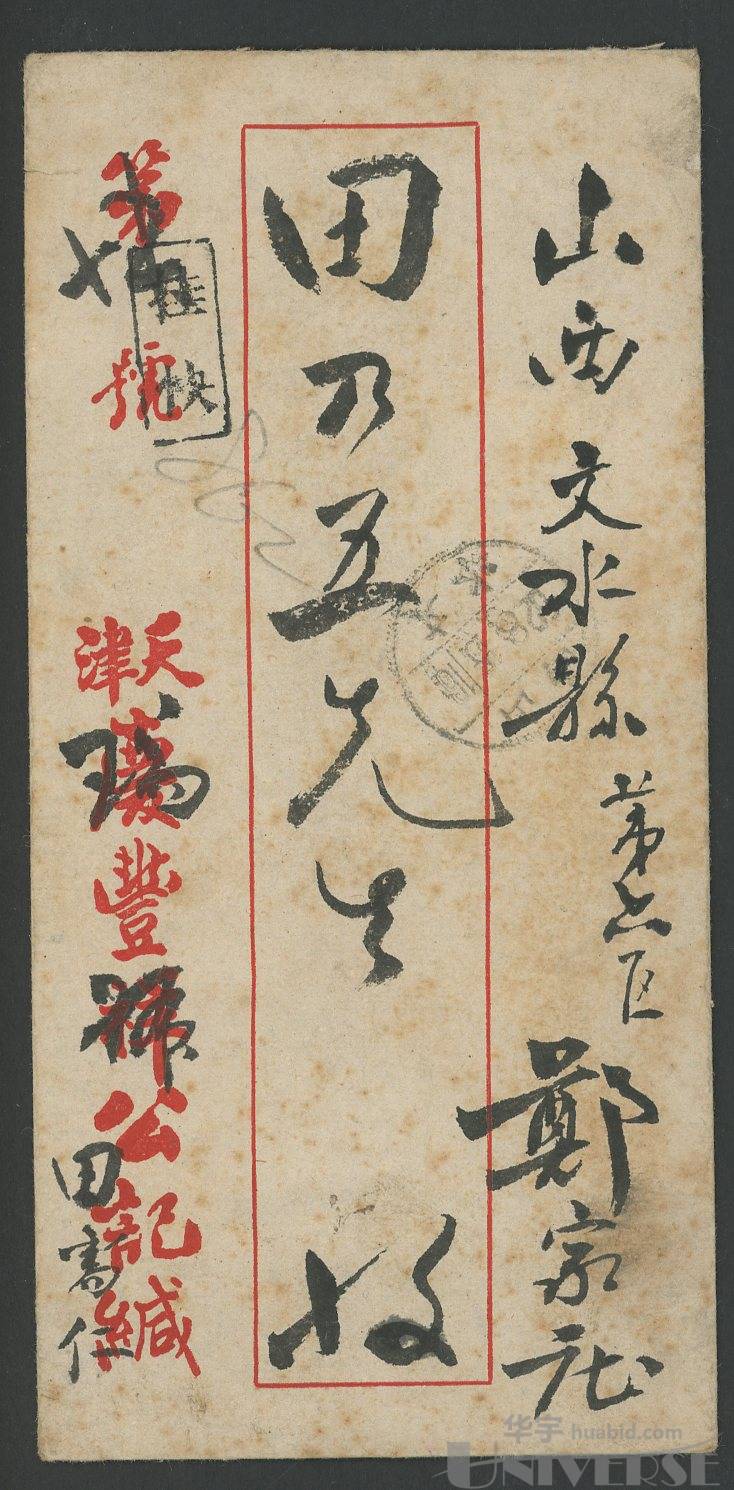 山西文水縣第六区鄭家庄
田乃五先生 收
第 號
挂
快
天津慶豐號公記緘
田寓仁
华宇 huabid.com
UNIVERSE